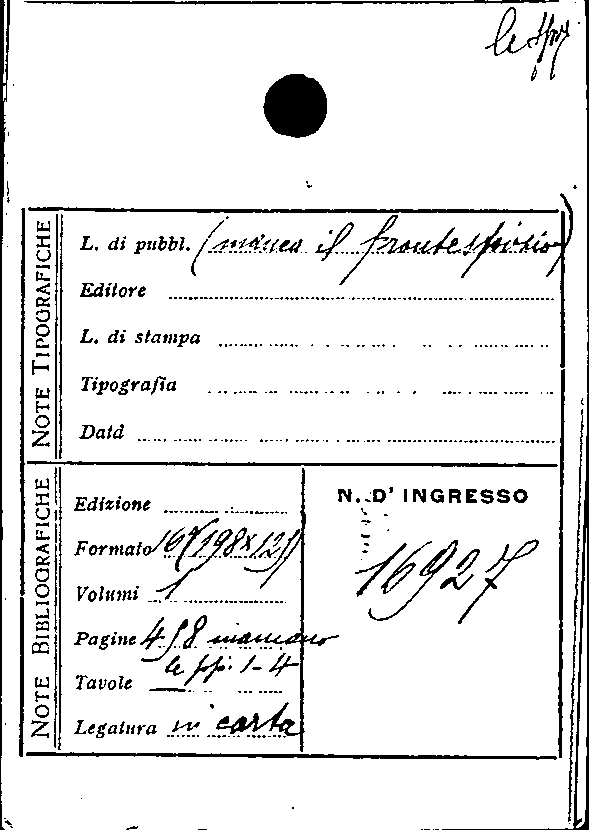 NOTE TIPOGRAFICHE
L. di pubbl. (manca il frontespizio)
Editore
L. di stampa
Tipografia
Data
NOTE BIBLIOGRAFICHE
Edizione
Formato 16° (198x121)
Volumi 1
Pagine 458 mancano
le pp. 1-4
Tavole —
Legatura in carta
N. D' INGRESSO
16927